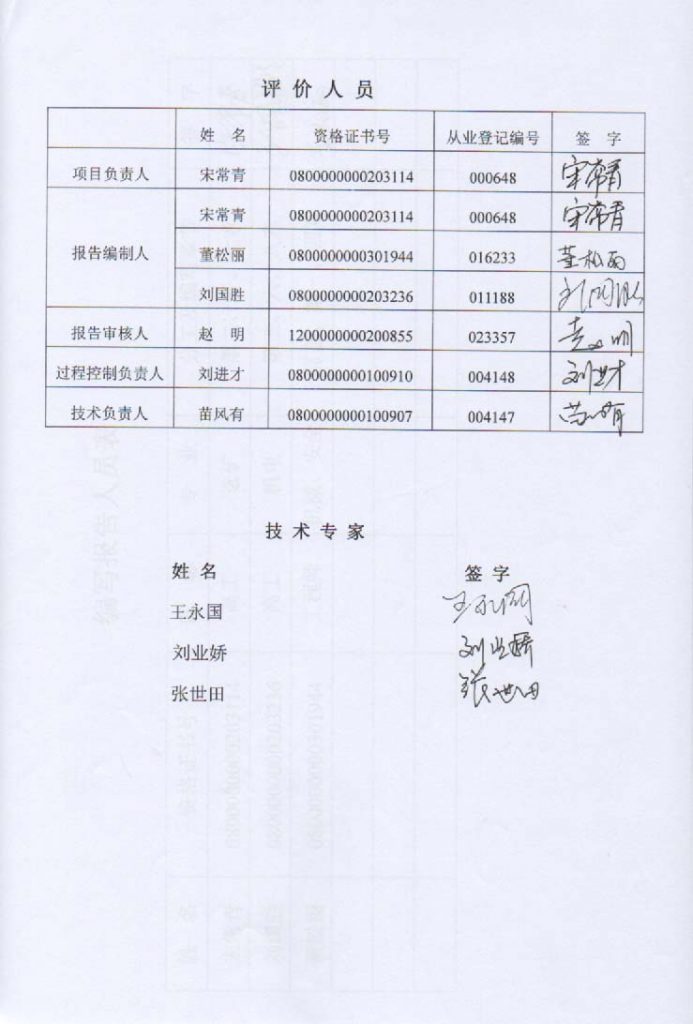 评价人员
姓 名 资格证书号 从业登记编号 签 字
项目负责人 宋常青 0800000000203114 000648 宋常青
报告编制人 宋常青 0800000000203114 000648 宋常青
董松丽 0800000000301944 016233 董松丽
刘国胜 0800000000203236 011188 刘国胜
报告审核人 赵 明 1200000000200855 023357 赵明
过程控制负责人 刘进才 0800000000100910 004148 刘进才
技术负责人 苗风有 0800000000100907 004147 苗风有
技术专家
姓 名 签 字
王永国 王永国
刘业娇 刘业娇
张世田 张世田